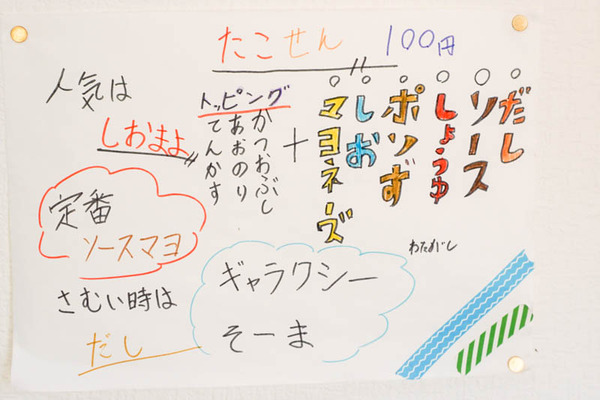 たこせん 100円
人気は
しおまよ
定番
ソースマヨ
さむい時は
だし
トッピング
かつおぶし
あおのり
てんかす
+
だし
ソース
しょうゆ
ポンず
しお
マヨネーズ
ギャラクシー
そーま
わたがし